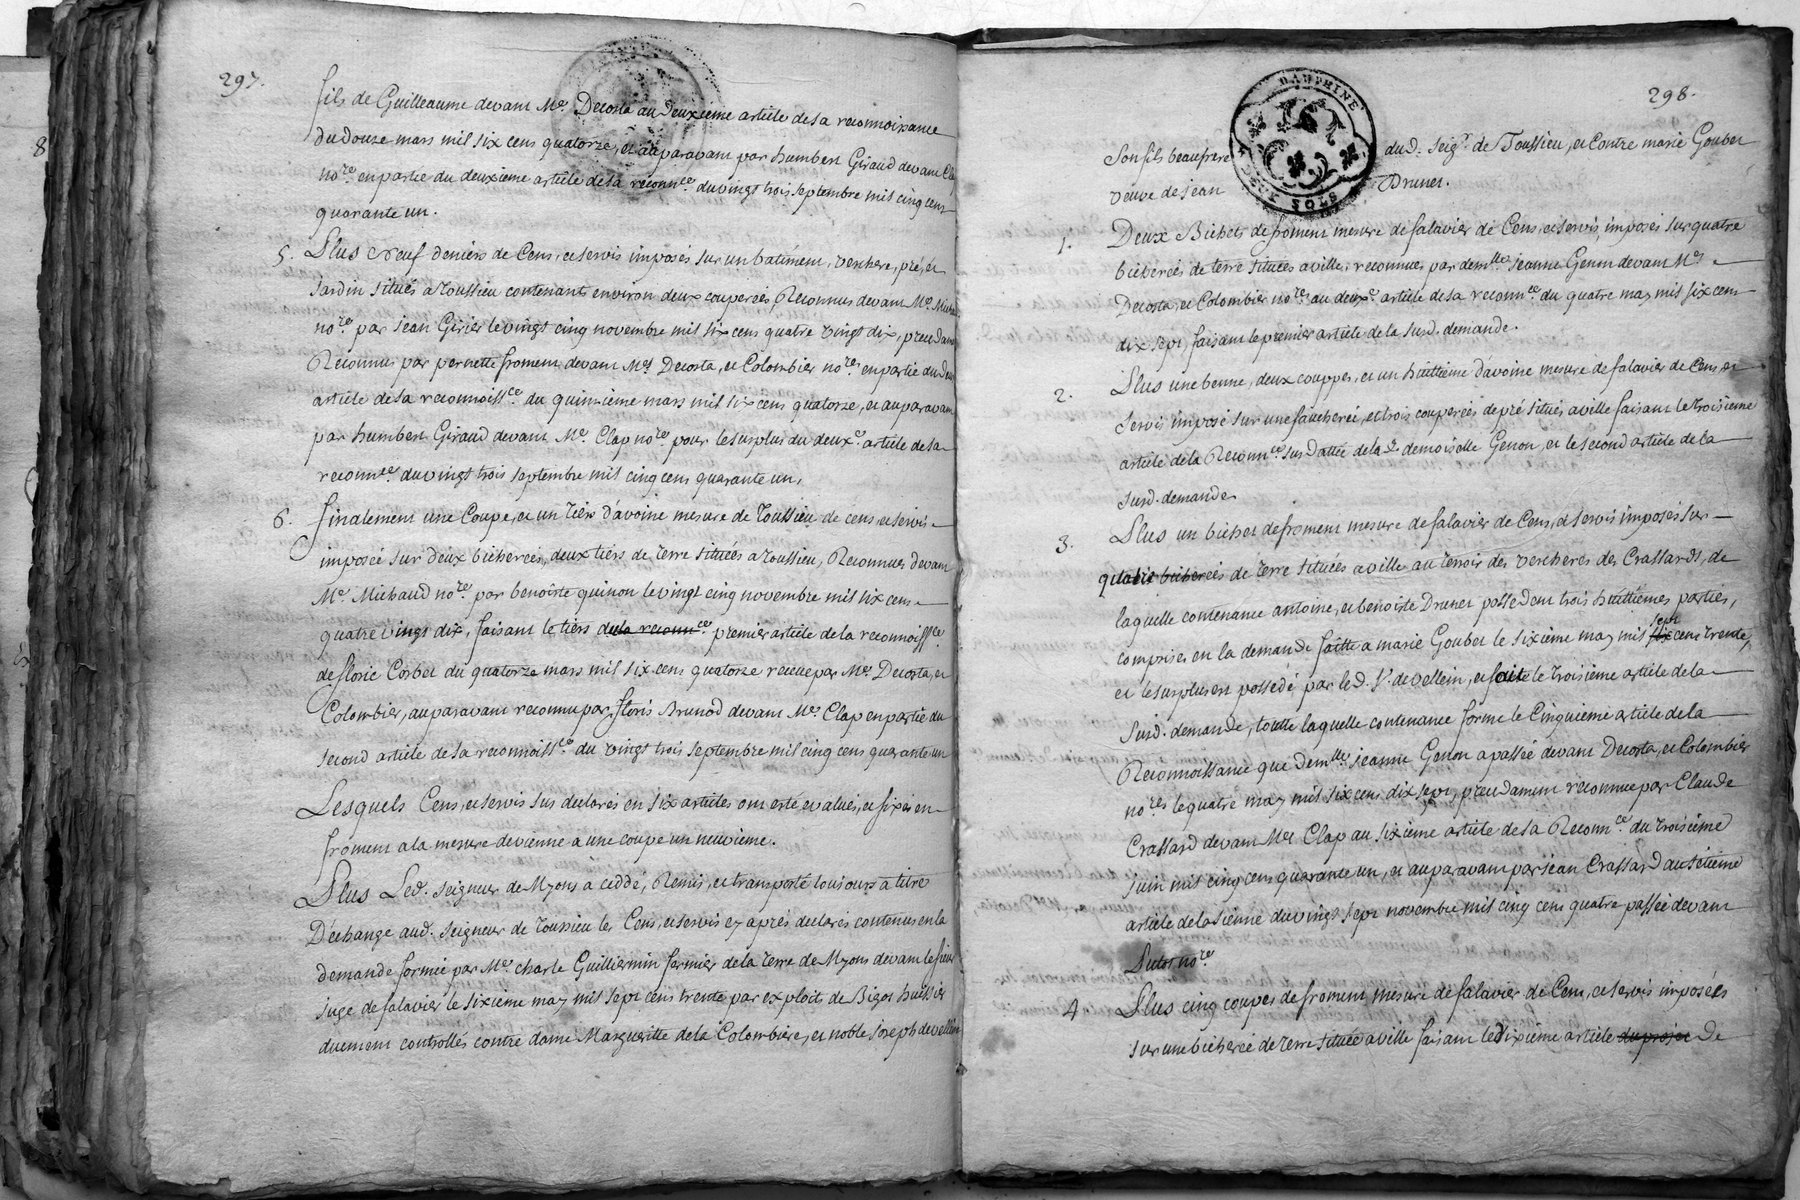 297.
fils de Guilleaume devant Me. Decosta au Deuxieme article de sa reconnoissance
du douze mars mil six cens quatorze, et auparavant par humbert Giraud devant Clap
nore. en partie du deuxieme article de sa reconnce. du vingt trois septembre mil cinq cens
quarante un.
5. Plus neuf deniers de Cens, et servis imposés sur un batiment, verchere, pré, et
Jardin situés a toussieu contenants environ deux couperées Reconnus devant Me. Michaud
nore. par Jean Girier le vingt cinq novembre mil six cens quatre vingt dix, preudamt
Reconnus par pernette froment devant Mes. Decosta, et Colombier nores. en partie du deux
article de sa reconnoissce. du quinzieme mars mil six cens quatorze, et auparavant
par humbert Giraud devant Me. Clap nore. pour le surplus du deuxe. article de sa
reconnce. du vingt trois septembre mil cinq cens quarante un,
6. finalement une Coupe, et un tiers d'avoine mesure de Toussieu de cens, et servis
imposée sur deux bicherées, deux tiers de terre situées a toussieu, Reconnues devant
Me. Michaud nore. par benoîste quinon le vingt cinq novembre mil six cens
quatre vingt dix, faisant le tiers dela reconnce. premier article de la reconnoissce
de floric Corbet du quatorze mars mil six cens quatorze receue par Me. Decosta, et
Colombier, auparavant reconnu par floris Brunod devant Me. Clap en partie du
second article de sa reconnoissce. du vingt trois septembre mil cinq cens quarante un
Lesquels Cens, et servis sus declarés en six articles ont esté evalués, et fixés en
froment a la mesure de vienne a une coupe un neuvieme.
Plus Led. seigneur de Myons à ceddé, Remis, et transporté toujours a titre
D'échange aud. seigneur de toussieu les Cens, et servis cy après declarés contenus en la
demande formée par Me. charle Guilliermin fermier de la terre de Myons devant le sieur
juge de falavier le sixieme may mil sept cens trente par exploits de Bigot huissier
duement controllés contre dame Margueritte de la Colombiere, et noble joseph de vellein
298.
DAUPHINE
DEUX SOLS
Son fils beaufrere du d. seigr. de Toussieu, et Contre marie Goubet
veuve de jean Drunet.
1. Deux Bichets de froment mesure de falavier de Cens, et servis, imposés sur quatre
bicherées de terre situées a ville, reconnues par demlle. Jeanne Genon devant Mes.
Decosta, et Colombier nores. au deuxe. article de sa reconnce. du quatre may mil six cens
dix sept, faisant le premier article de la susd. demande.
2. Plus une benne, deux couppes, et un huittieme d'avoine mesure de falavier de Cens, et
servis imposé sur une faucherée, et trois couperées de pré situés a ville faisant le troisieme
article de la Reconnce. susdattée de la de. demoiselle Genon, et le second article de la
susd. demande
3. Plus un bichet de froment mesure de falavier de Cens, et servis imposés sur
quatre bicherées de terre situées a ville au terroir des vercheres des Crassards, de
laquelle contenance antoine, et benoiste Drunet possedent trois huittiemes parties,
comprises en la demande faitte a marie Goubet le sixieme may mil six sept cens trente,
et le surplus est possedé par le d. Sr. de vellein, et fait le troisieme article de la
susd. demande, toutte laquelle contenance forme le Cinquieme article de la
Reconnoissance que demlle. jeanne Genon a passée devant Decosta, et Colombier
nores. le quatre may mil six cens dix sept, preudament reconnue par Claude
Crassard devant Mes. Clap au sixieme article de sa Reconnce. du troisieme
juin mil cinq cens quarante un, et auparavant par jean Crassard au setieme
article de la sienne du vingt sept novembre mil cinq cens quatre passée devant
nore.
4 Plus cinq coupes de froment mesure de falavier de Cens, et servis imposées
sur une bicherée de terre située a ville faisant le dixieme article De